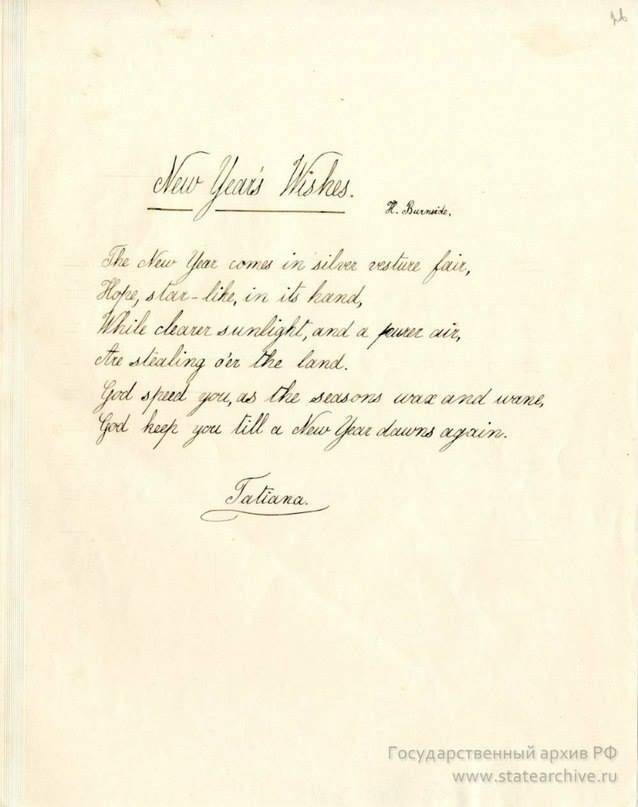 26
New Year's Wishes.
H. Burneide.
The New Year comes in silver vesture fair,
Hope, star-like, in its hand,
While clearer sunlight, and a purer air,
Are stealing o'er the land.
God speed you, as the seasons wax and wane,
God keep you till a New Year dawns again.
Tatiana.
Государственный архив РФ
www.statearchive.ru